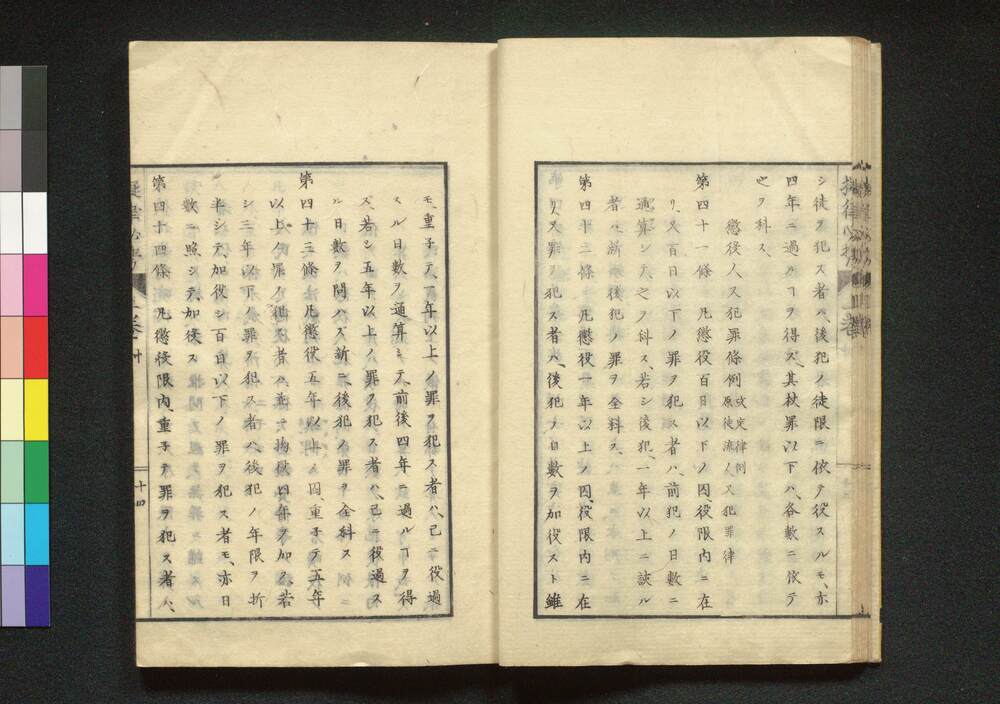 シ徒ヲ犯ス者ハ、後犯ノ徒限ニ依テ役スルモ、亦
四年ニ過ルヿヲ得ズ、其杖罪以下ハ、各數ニ依テ
之ヲ科ス、
懲役人又犯罪條例 改定律例
原徒流人又犯罪律
第四十一條 凡懲役百日以下ノ囚、役限内ニ在
リ、又百日以下ノ罪ヲ犯ス者ハ、前犯ノ日數ニ
通算シテ、之ヲ科ス、若シ後犯、一年以上ニ該ル
者ハ、新ニ後犯ノ罪ヲ全科ス、
第四十二條 凡懲役一年以上ノ囚、役限内ニ在
リ、又罪ヲ犯ス者ハ、後犯ノ日數ヲ加役スト雖
モ、重子テ一年以上ノ罪ヲ犯ス者ハ、已ニ役過
スル日數ヲ通算シテ、前後四年ニ過ルヿヲ得
ズ、若シ五年以上ノ罪ヲ犯ス者ハ、已ニ役過ス
ル日數ヲ問ハズ、新ニ後犯ノ罪ヲ全科ス
第四十三條 凡懲役五年以上ノ囚、重子テ五年
以上ノ罪ヲ犯ス者ハ、並テ拘役四年ヲ加ヘ、若
シ三年以下ノ罪ヲ犯ス者ハ、後犯ノ年限ヲ折
半シテ、加役シ百日以下ノ罪ヲ犯ス者モ、亦日
數ニ照シテ、加役ス
第四十四條 凡懲役限内、重子テ罪ヲ犯ス者ハ、
十四